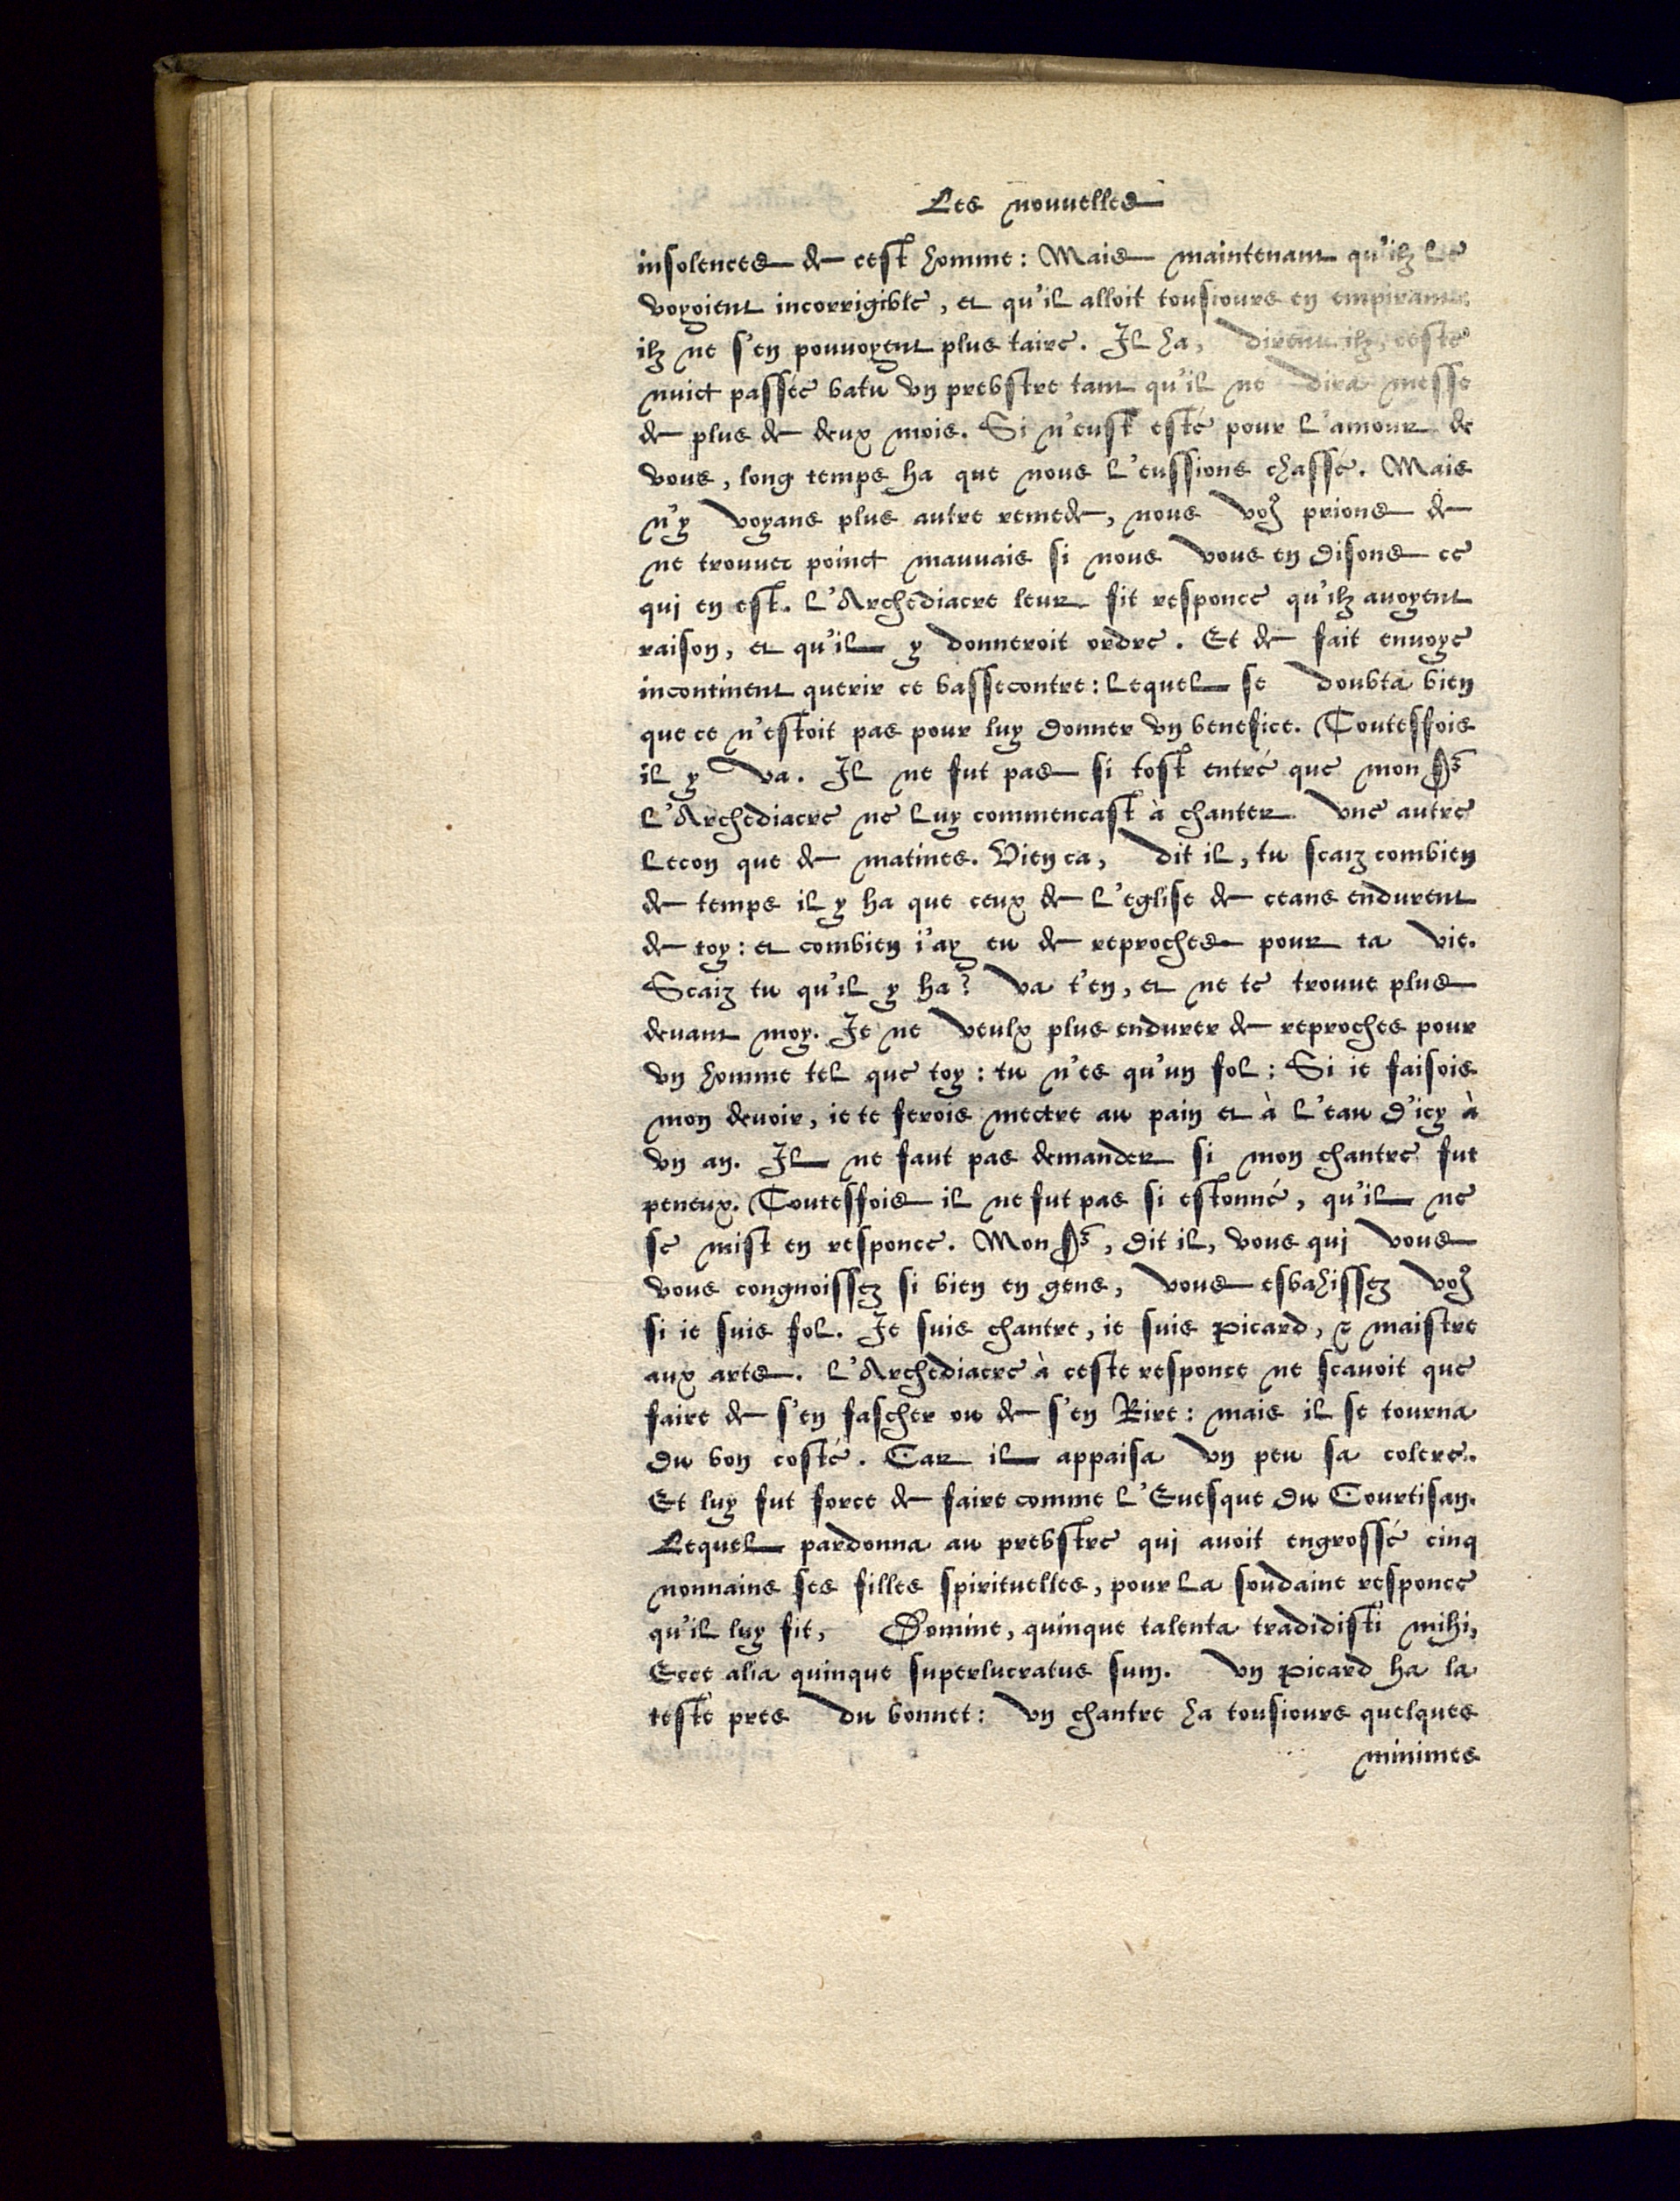 Les nouuelles
insolences de cest homme: Mais maintenant qu'ilz le
voyoient incorrigible, et qu'il alloit tousiours en empirant,
ilz ne s'en pouuoyent plus taire. Il ha, dirent ilz, ceste
nuict passée batu vn prebstre tant qu'il ne dira messe
de plus de deux mois. Si n'eust esté pour l'amour de
vous, long temps ha que nous l'eussions chassé. Mais
n'y voyans plus autre remede, nous voꝰ prions de
ne trouuer poinct mauuais si nous vous en disons ce
qui en est. L'Archediacre leur fit responce qu'ilz auoyent
raison, et qu'il y donneroit ordre. Et de fait enuoye
incontinent querir ce bassecontre: lequel se doubta bien
que ce n'estoit pas pour luy donner vn benefice. Toutesfois
il y va. Il ne fut pas si tost entré que monsʳ
L'Archediacre ne luy commencast à chanter vne autre
lecon que de matines. Vien ca, dit il, tu scaiz combien
de temps il y ha que ceux de l'eglise de ceans endurent
de toy: et combien i'ay eu de reproches pour ta vie.
Scaiz tu qu'il y ha? va t'en, et ne te trouue plus
deuant moy. Ie ne veulx plus endurer de reproches pour
vn homme tel que toy: tu n'es qu'vn fol: Si ie faisois
mon deuoir, ie te ferois mectre au pain et à l'eau d'icy à
vn an. Il ne faut pas demander si mon chantre fut
peneux. Toutesfois il ne fut pas si estonné, qu'il ne
se mist en responce. Monsʳ, dit il, vous qui vous
vous congnoissez si bien en gens, vous esbahissez voꝰ
si ie suis fol. Ie suis chantre, ie suis Picard, & maistre
aux arts. L'Archediacre à ceste responce ne scauoit que
faire de s'en fascher ou de s'en Rire: mais il se tourna
du bon costé. Car il appaisa vn peu sa colere.
Et luy fut force de faire comme l'Euesque du Courtisan.
Lequel pardonna au prebstre qui auoit engrossé cinq
nonnains ses filles spirituelles, pour la soudaine responce
qu'il luy fit, Domine, quinque talenta tradidisti mihi,
Ecce alia quinque superlucratus sum. Vn Picard ha la
teste pres du bonnet: vn chantre ha tousiours quelques
minimes